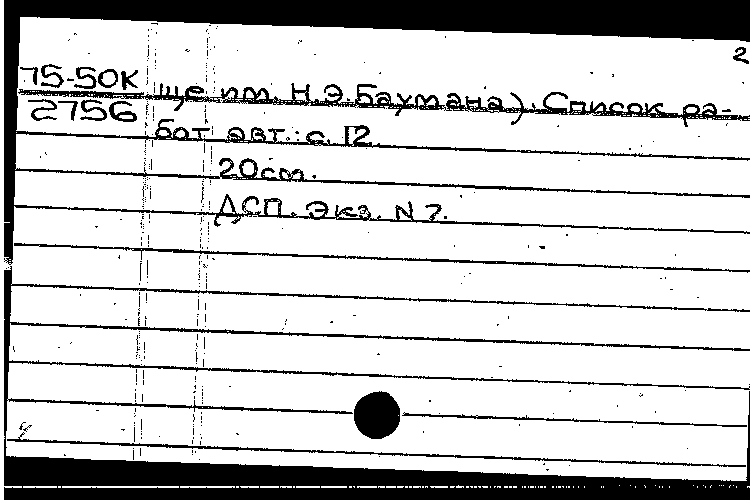 2
75-50К ще им. Н.Э.Баумана). Список ра-
2756 бот авт.: с. 12
20см.
ДСП. Экз. N 7.